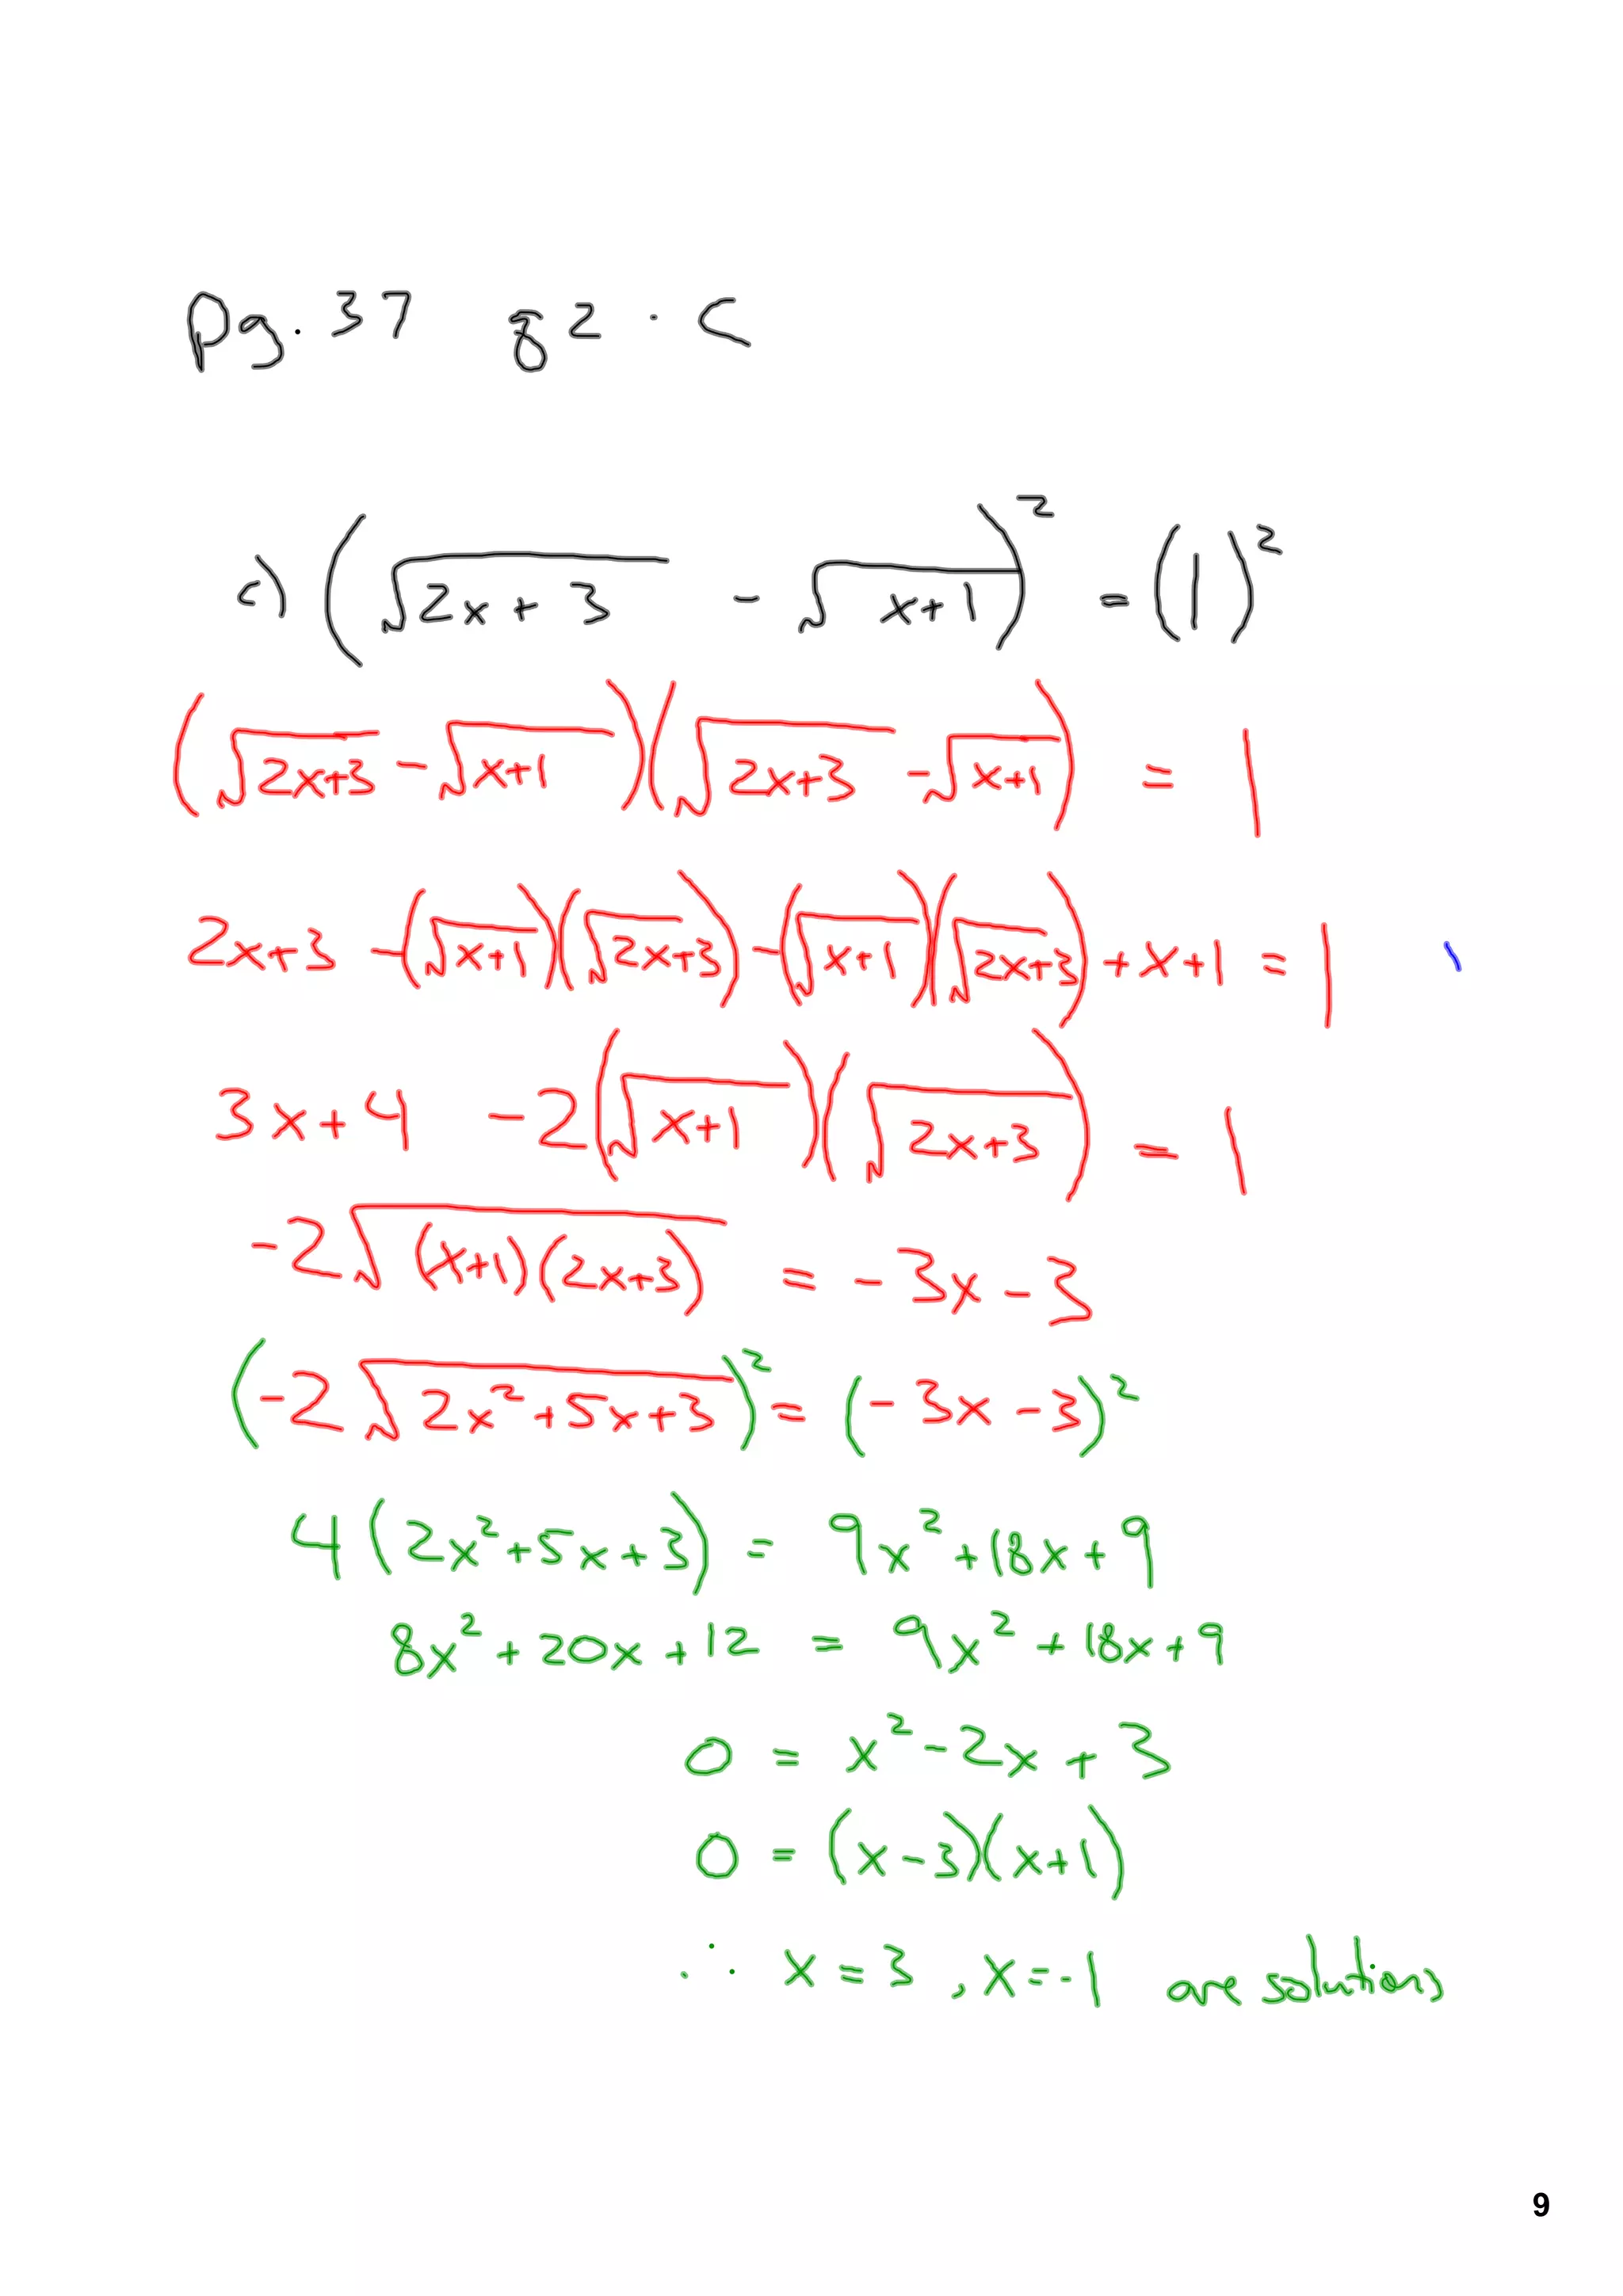 Pg. 37 g2 . C
c) (√(2x+3) - √(x+1))² = (1)²
(√(2x+3) - √(x+1))(√(2x+3) - √(x+1)) = 1
2x+3 -(√(x+1))(√(2x+3)) - (√(x+1))(√(2x+3)) + x+1 = 1
3x+4 -2(√(x+1))(√(2x+3)) = 1
-2√((x+1)(2x+3)) = -3x-3
(-2√(2x²+5x+3))² = (-3x-3)²
4(2x²+5x+3) = 9x²+18x+9
8x²+20x+12 = 9x²+18x+9
0 = x²-2x+3
0 = (x-3)(x+1)
∴ x=3, x=-1 are solutions
9